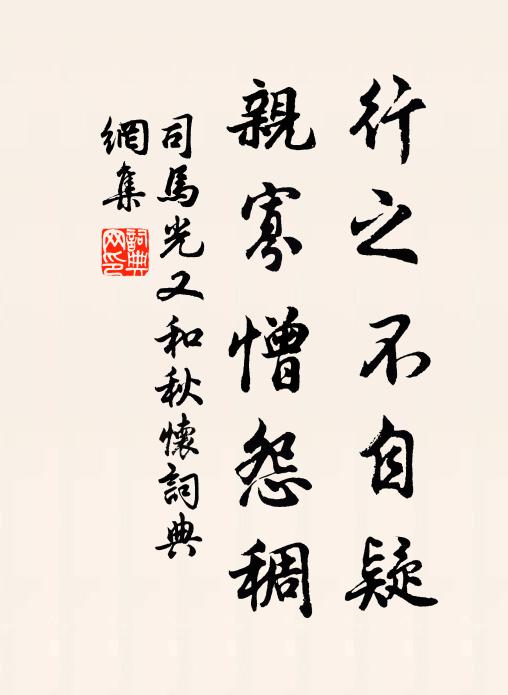 行之不自疑
親寡憎怨稠
司馬光又和秋懷詞典
網集
詞典
网印